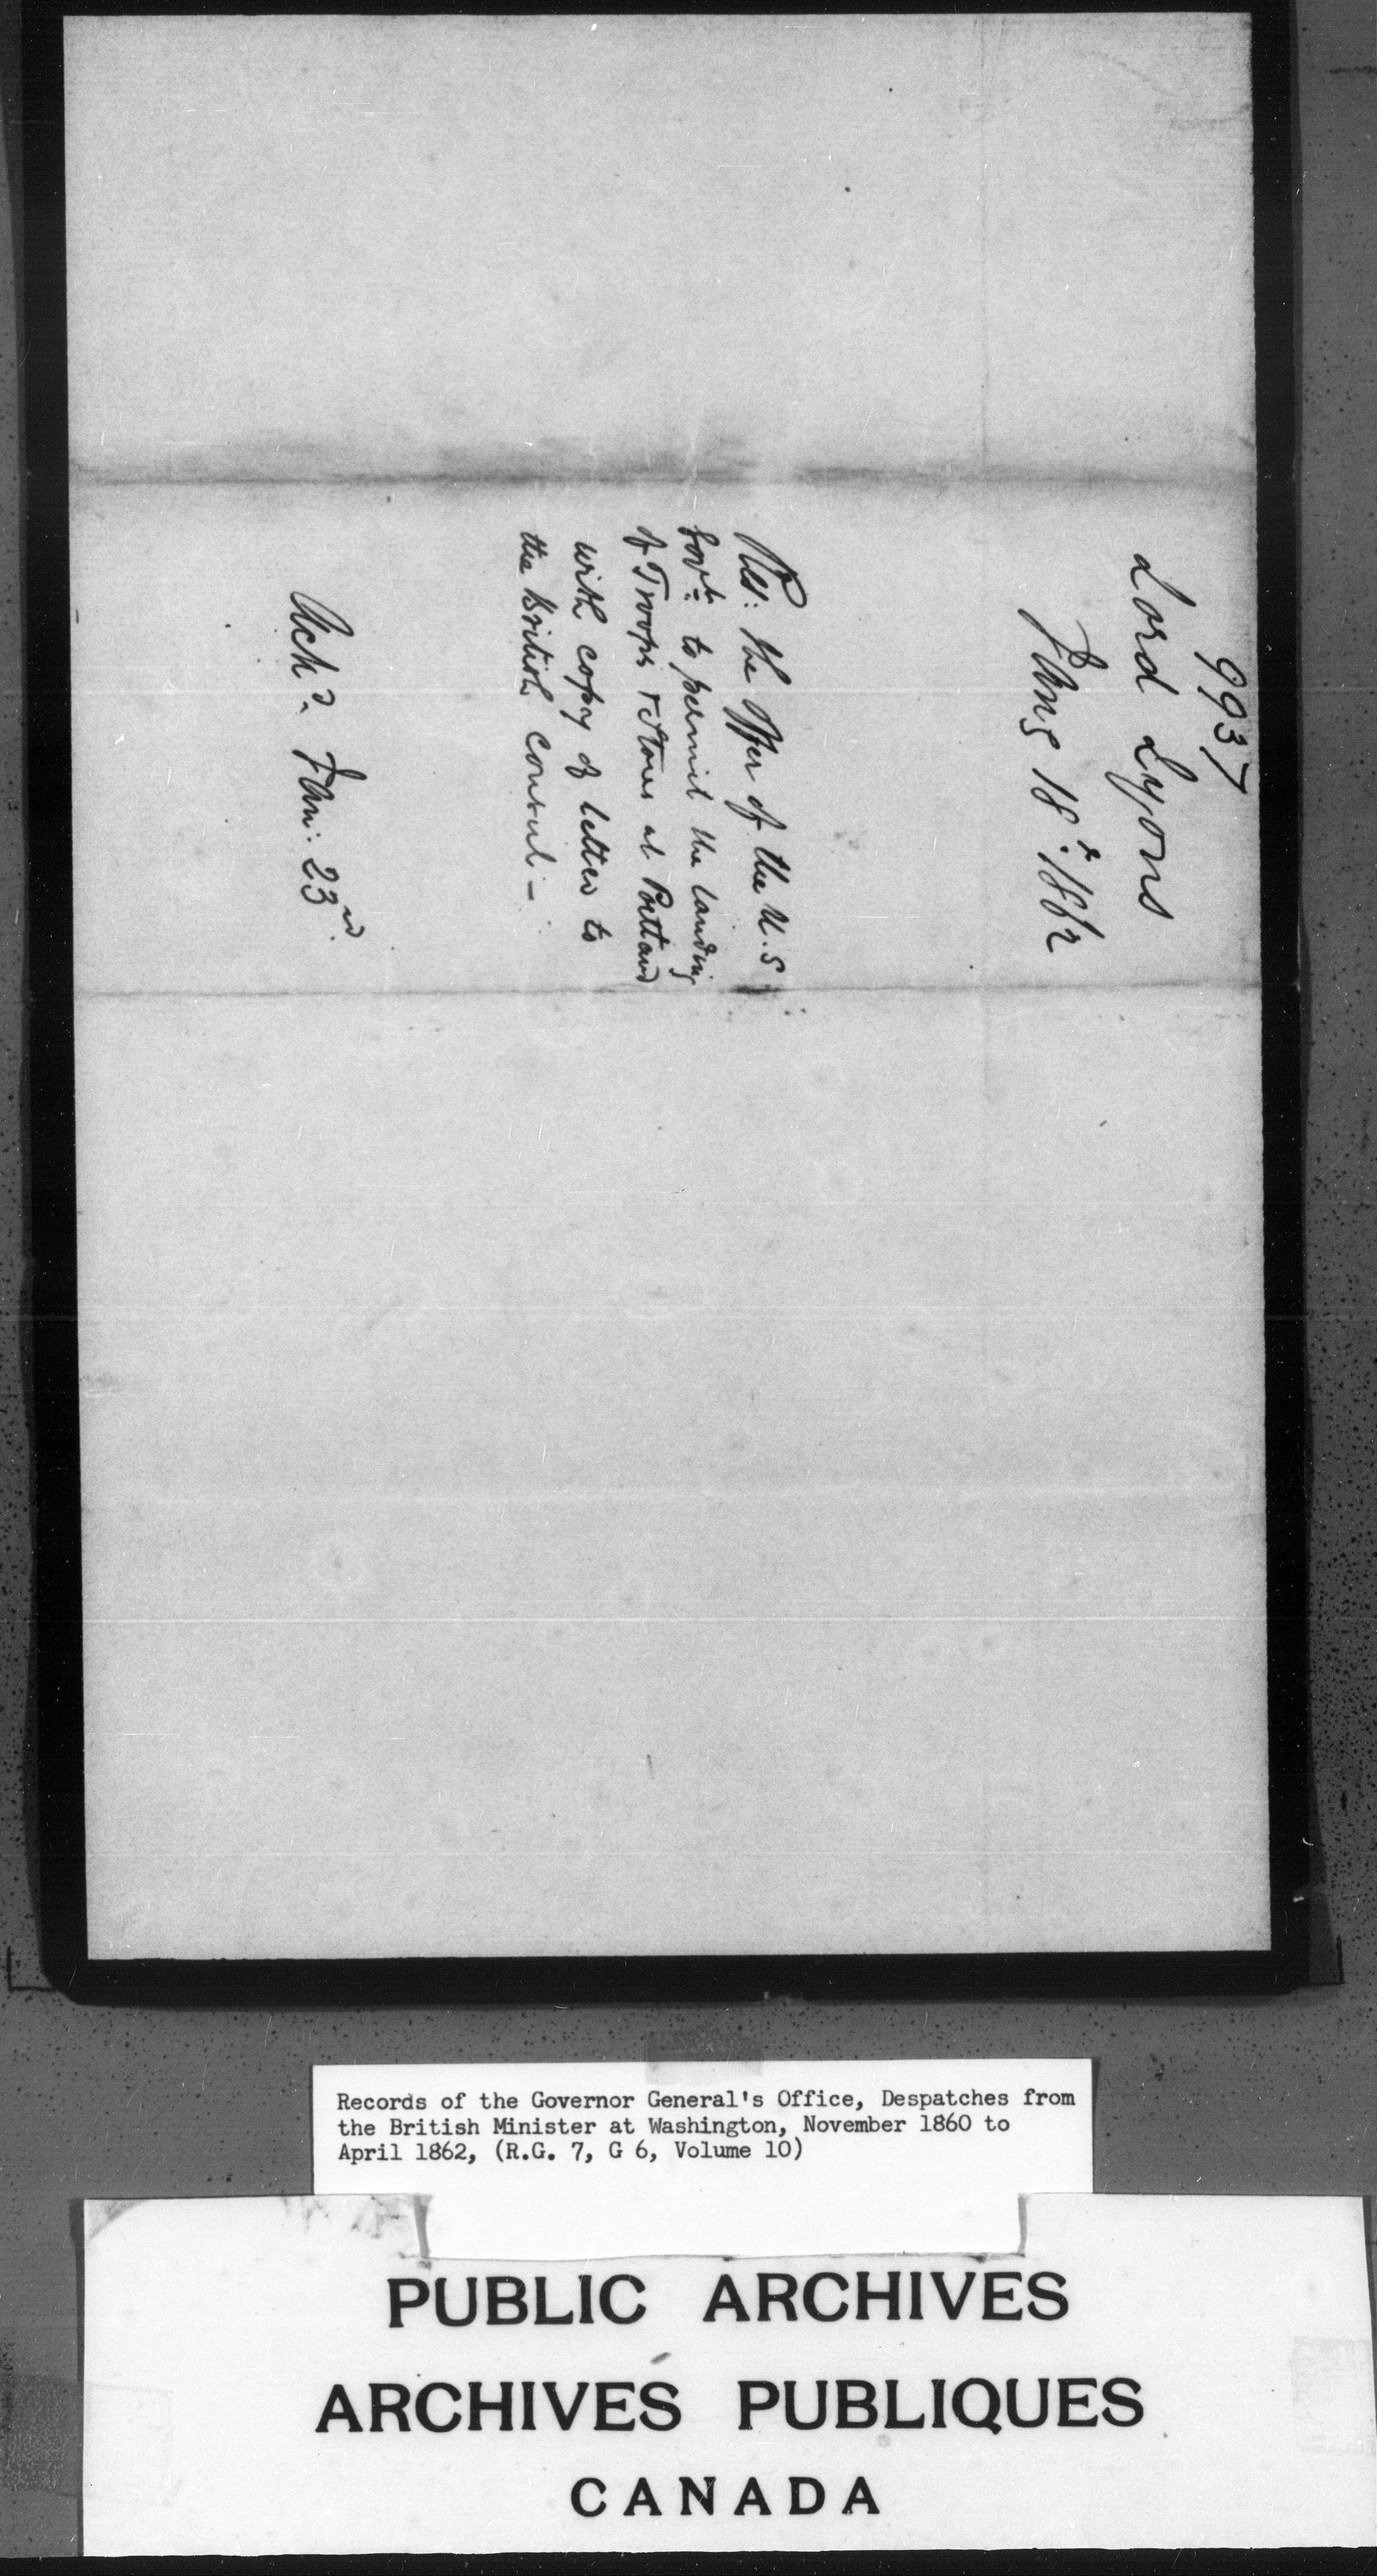 9937
Lord Lyons
Jany 18th. 1862
Res: the offer of the U.S.
Govt: to permit the landing
of Troops & Stores at Portland
with copy of letter to
the British Consul —
Ackd. Jan: 23rd.
Records of the Governor General's Office, Despatches from
the British Minister at Washington, November 1860 to
April 1862, (R.G. 7, G 6, Volume 10)
PUBLIC ARCHIVES
ARCHIVES PUBLIQUES
CANADA